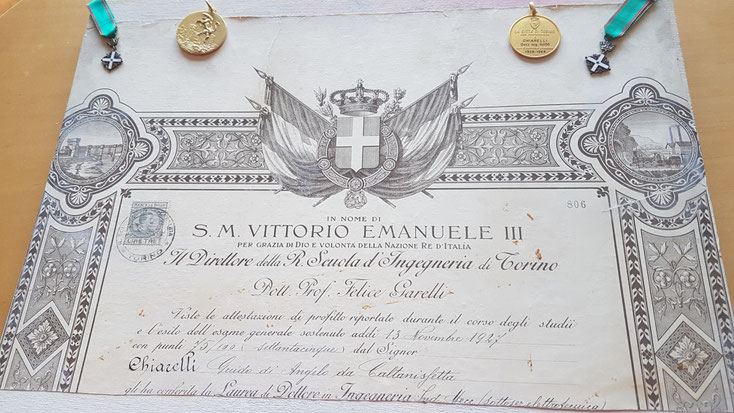 CHIARELLI
806
LIRE TRE
TORINO
IN NOME DI
S. M. VITTORIO EMANUELE III
PER GRAZIA DI DIO E VOLONTÀ DELLA NAZIONE RE D'ITALIA
Il Direttore della R. Scuola d'Ingegneria di Torino
Dott. Prof. Felice Garelli
Viste le attestazioni di profitto riportate durante il corso degli studii
e l'esito dell'esame generale sostenuto addì 13 Novembre 1927
con punti 75/100 (settantacinque) dal Signor
Chiarelli Guido di Angelo da Caltanissetta
gli ha conferita la Laurea di Dottore in Ingegneria